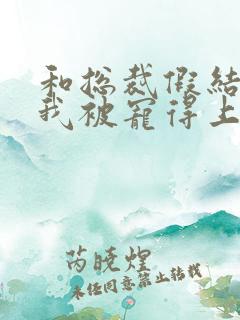 和总裁假结
我被宠得上
芮晓煌
未经同意禁止转载